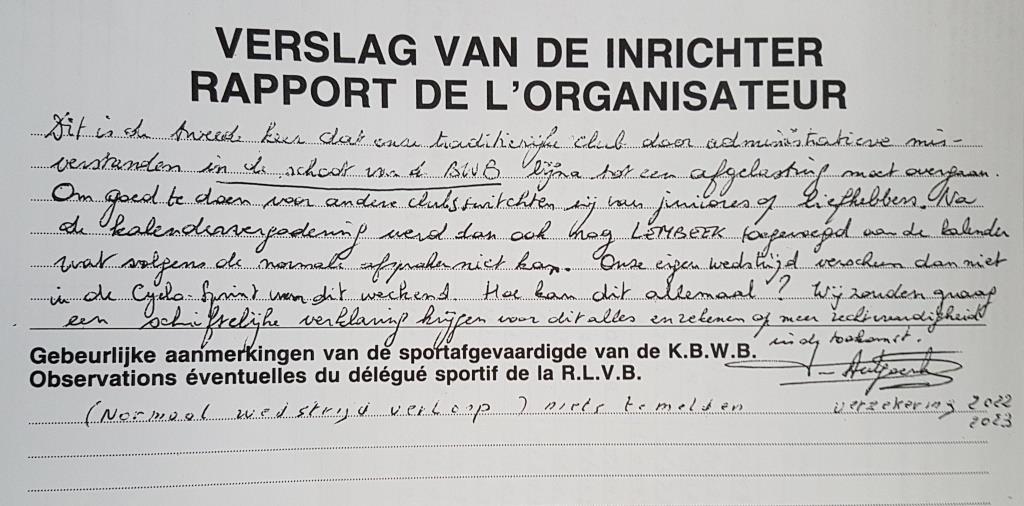 VERSLAG VAN DE INRICHTER
RAPPORT DE L'ORGANISATEUR
Dit is de tweede keer dat onze traditierijke club door administratieve mis-
verstanden in de schoot van de BWB bijna tot een afgelasting moet overgaan.
Om goed te doen voor andere clubs switchten wij van juniores of liefhebbers. Na
de kalendervergadering werd dan ook nog LEMBEEK toegevoegd aan de kalender
wat volgens de normale afspraken niet kan. Onze eigen wedstrijd verscheen dan niet
in de Cyclo-Sprint van dit weekend. Hoe kan dit allemaal? Wij zouden graag
een schriftelijke verklaring krijgen voor dit alles en rekenen op meer rechtvaardigheid
in de toekomst.
Gebeurlijke aanmerkingen van de sportafgevaardigde van de K.B.W.B.
Observations éventuelles du délégué sportif de la R.L.V.B.
(Normaal wedstrijd verloop) niets te melden verzekering 2022
2023